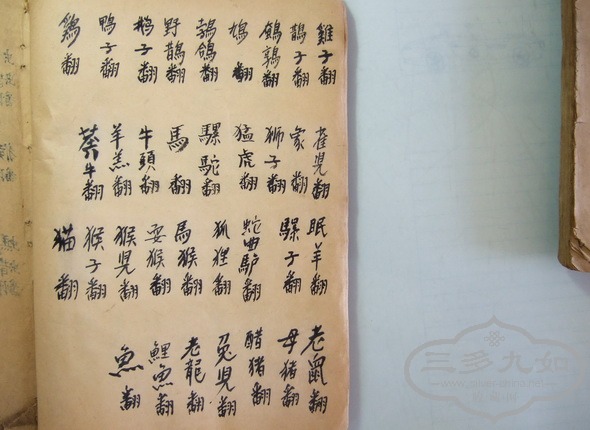 雞子翻
鵲子翻
鵪鶉翻
鳩翻
鵓鴿翻
野鵲翻
鵝子翻
鴨子翻
鶏翻
雀児翻
象翻
狮子翻
猛虎翻
騾駝翻
馬翻
牛頭翻
羊羔翻
牛翻
眠羊翻
騾子翻
蛇曲馿翻
狐狸翻
馬猴翻
耍猴翻
猴児翻
猴子翻
猫翻
老鼠翻
母猪翻
醋猪翻
兔児翻
老龍翻
鯉魚翻
魚翻
三多九如